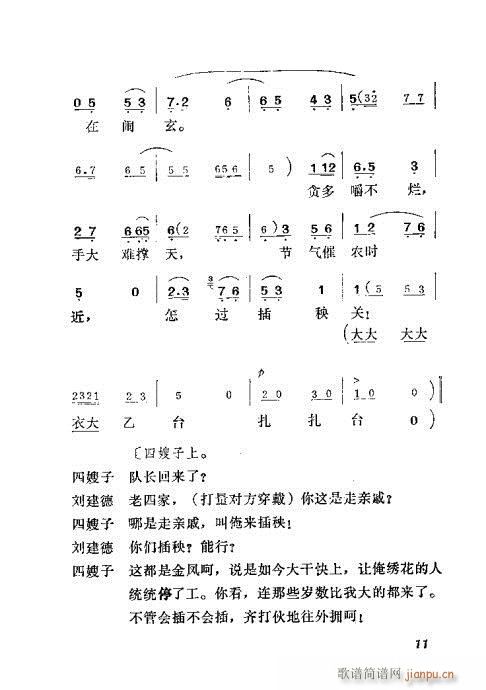 0 5 5 3 7·2 6 6 5 4 3 5 (32 7 7
在 闹 玄。
6·7 6 5 5 5 656 5 ) 112 6·5 3
贪多 嚼不 烂，
2 7 665 6(2 765 6)3 5 6 1 2 7 6
手大 难撑 天， 节 气催 农时
5 0 2·3 7 6 5 3 1 1 ( 5 5 3
近， 怎 过 插 秧 关！
(大大 大大
2321 2 3 5 0 2 0 3 0 1 0 0 )
衣大 乙 台 扎 扎 台 0 )
〔四嫂子上。
四嫂子 队长回来了？
刘建德 老四家，（打量对方穿戴）你这是走亲戚？
四嫂子 哪是走亲戚，叫俺来插秧！
刘建德 你们插秧？能行？
四嫂子 这都是金凤呵，说是如今大干快上，让俺绣花的人
统统停了工。你看，连那些岁数比我大的都来了。
不管会插不会插，齐打伙地往外拥呵！
11
歌谱简谱网
jianpu.cn